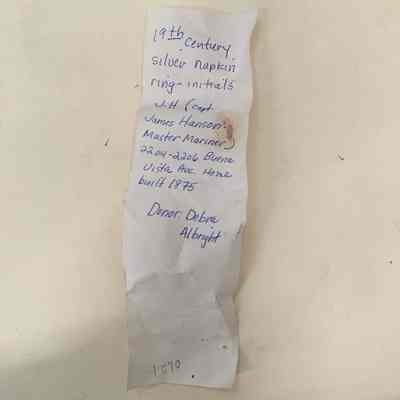 19th Century
silver napkin
ring - initials
J.H (Capt.
James Hanson -
Master Mariner)
2204-2206 Buena
Vista Ave Home
built 1875
Donor: Debra
Albright